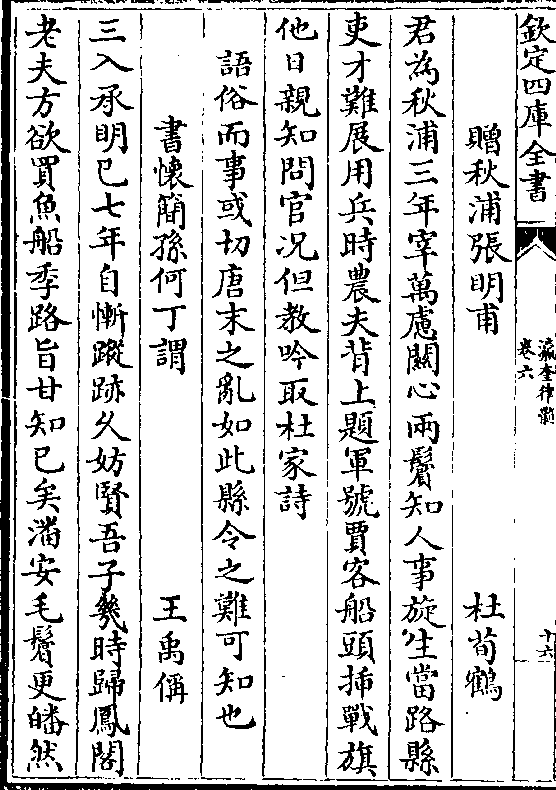 欽定四庫全書
瀛奎律髓
卷六
十六
贈秋浦張明甫　杜荀鶴
君為秋浦三年宰萬慮關心兩鬢知人事旋生當路縣
吏才難展用兵時農夫背上題軍號賈客船頭揷戰旗
他日親知問官况但教吟取杜家詩
語俗而事或切唐末之亂如此縣令之難可知也
書懷簡孫何丁謂　王禹偁
三入承明已七年自慚蹤跡久妨賢吾子幾時歸鳳閣
老夫方欲買魚船季路旨甘知已矣潘安毛鬢更皤然